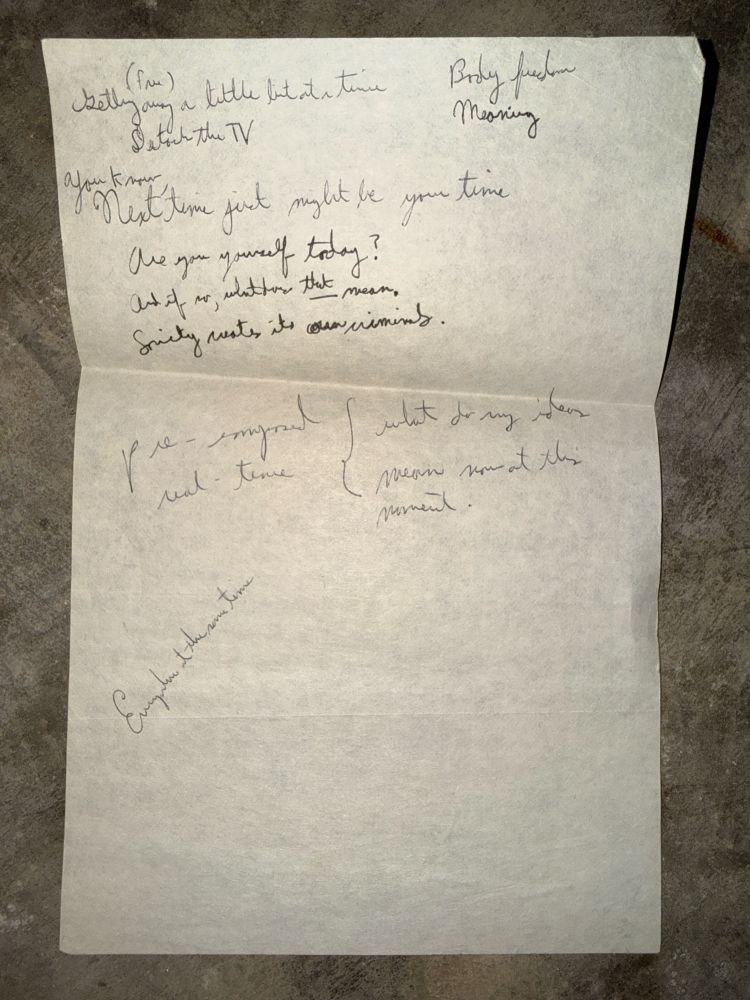 (Free)
Getting away a little bit at a time
Body freedom
Detach the TV
Meaning
You know,
Next time just might be your time
Are you yourself today?
And if so, what does that mean.
Society creates its own criminals.
Pre-composed
what do my ideas
real-time
mean now at this
moment.
at the same time